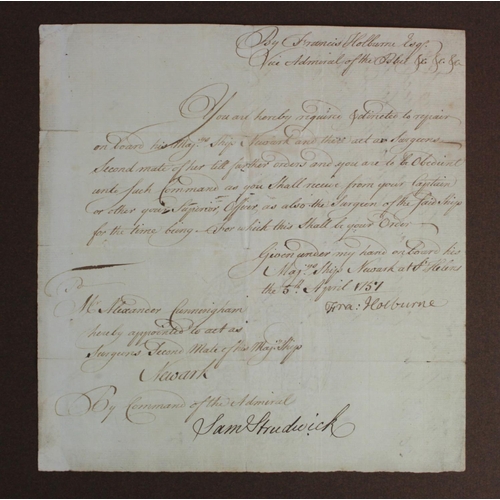 By Francis Holburne Esqr.
Vice Admiral of the Blue &c. &c. &c.
You are hereby require & directed to repair
on board his Majtys Ship Newark and there act as Surgeons
Second mate of her till further orders and you are to be Obedient
unto such Command as you Shall receive from your Captain
or other your Superior Officer, as also the Surgeon of the said Ship
for the time being. For which this Shall be your Order
Given under my hand on board his
Majtys Ship Newark at St. Helens
the 5th April 1757
Fra: Holburne
Mr Alexander Cunningham
hereby appointed to act as
Surgeons Second Mate of his Majtys Ship
Newark
By Command of the Admiral
Sam Strudwick